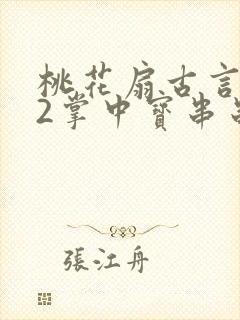 桃花扇古言
2掌中寶串
張江舟